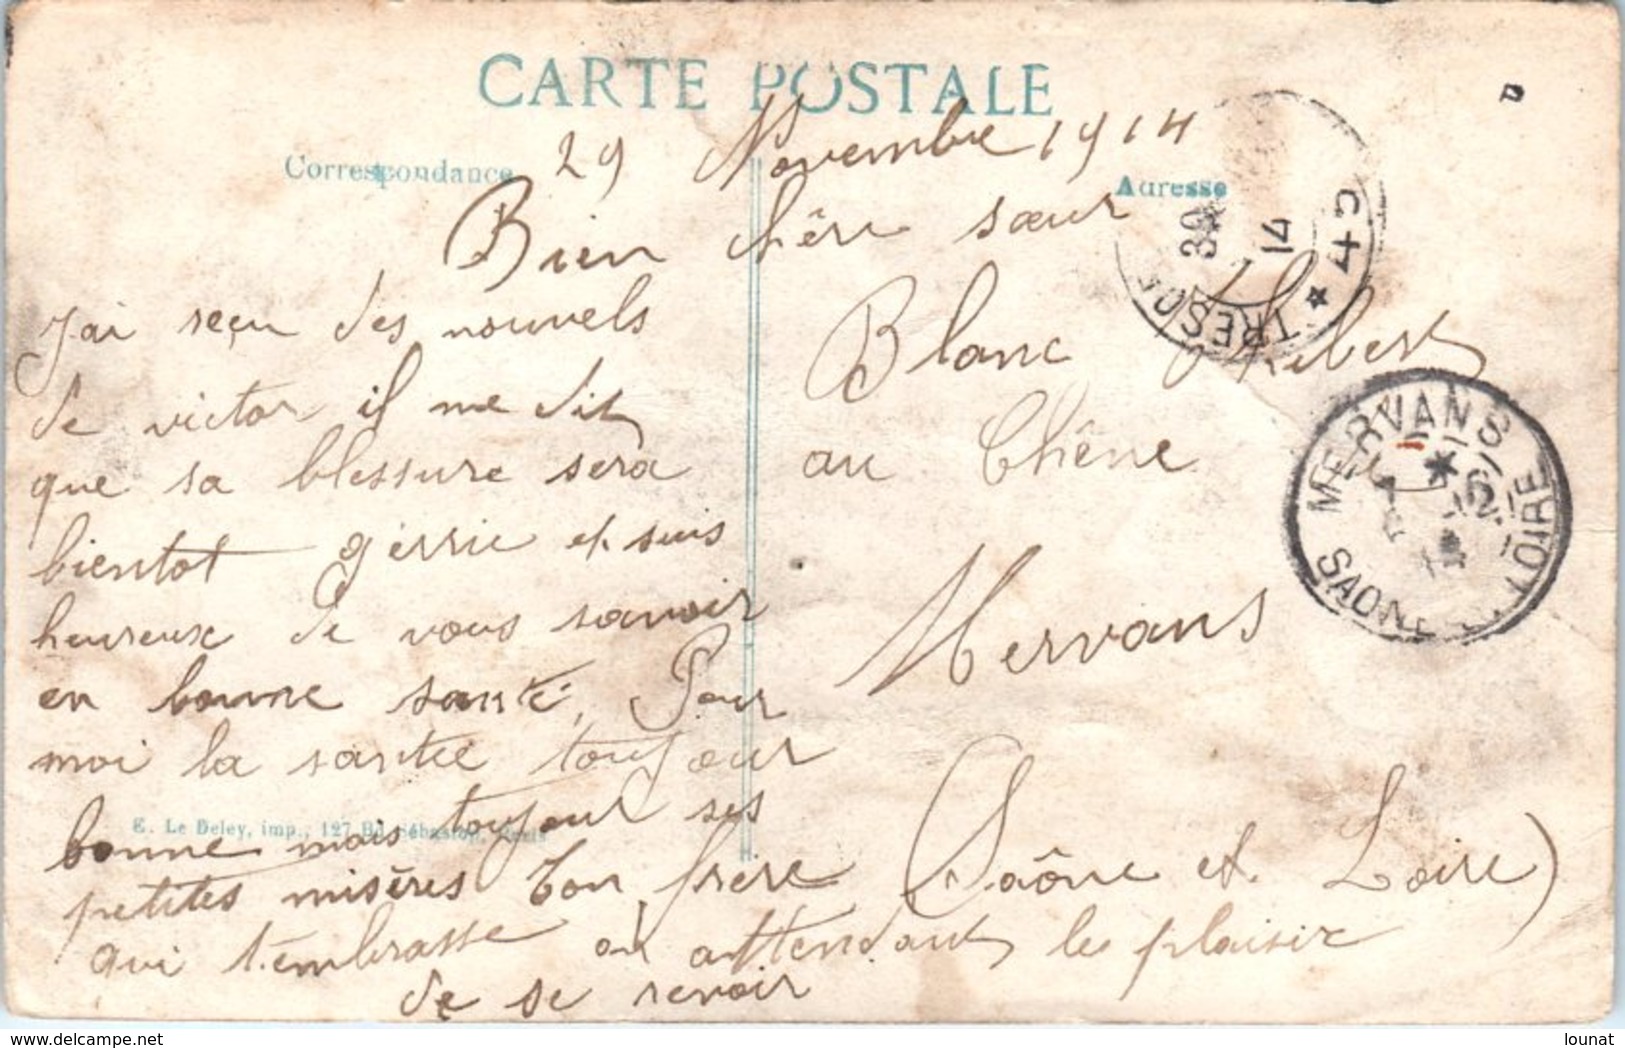 CARTE POSTALE
Correspondance
Adresse
29 Novembre 1914
Bien chêre sœur
J'ai reçu des nouvels
de victor il me dit
que sa blessure sera
bientot gérrie et suis
heureux de vous savoir
en bonne santé, Pour
moi la santée toujour
bonne mais toujour ses
petites misêres Ton frere
qui t'embrasse en attendant le plaisir
de se revoir
E. Le Deley, imp., 127 Bd Sébastop., Paris
Blanc
au Chêne
Mervans
(Saône et Loire)
TRESOR
* 45
30
14
MERVANS
SAONE ET LOIRE
www.delcampe.net
lounat